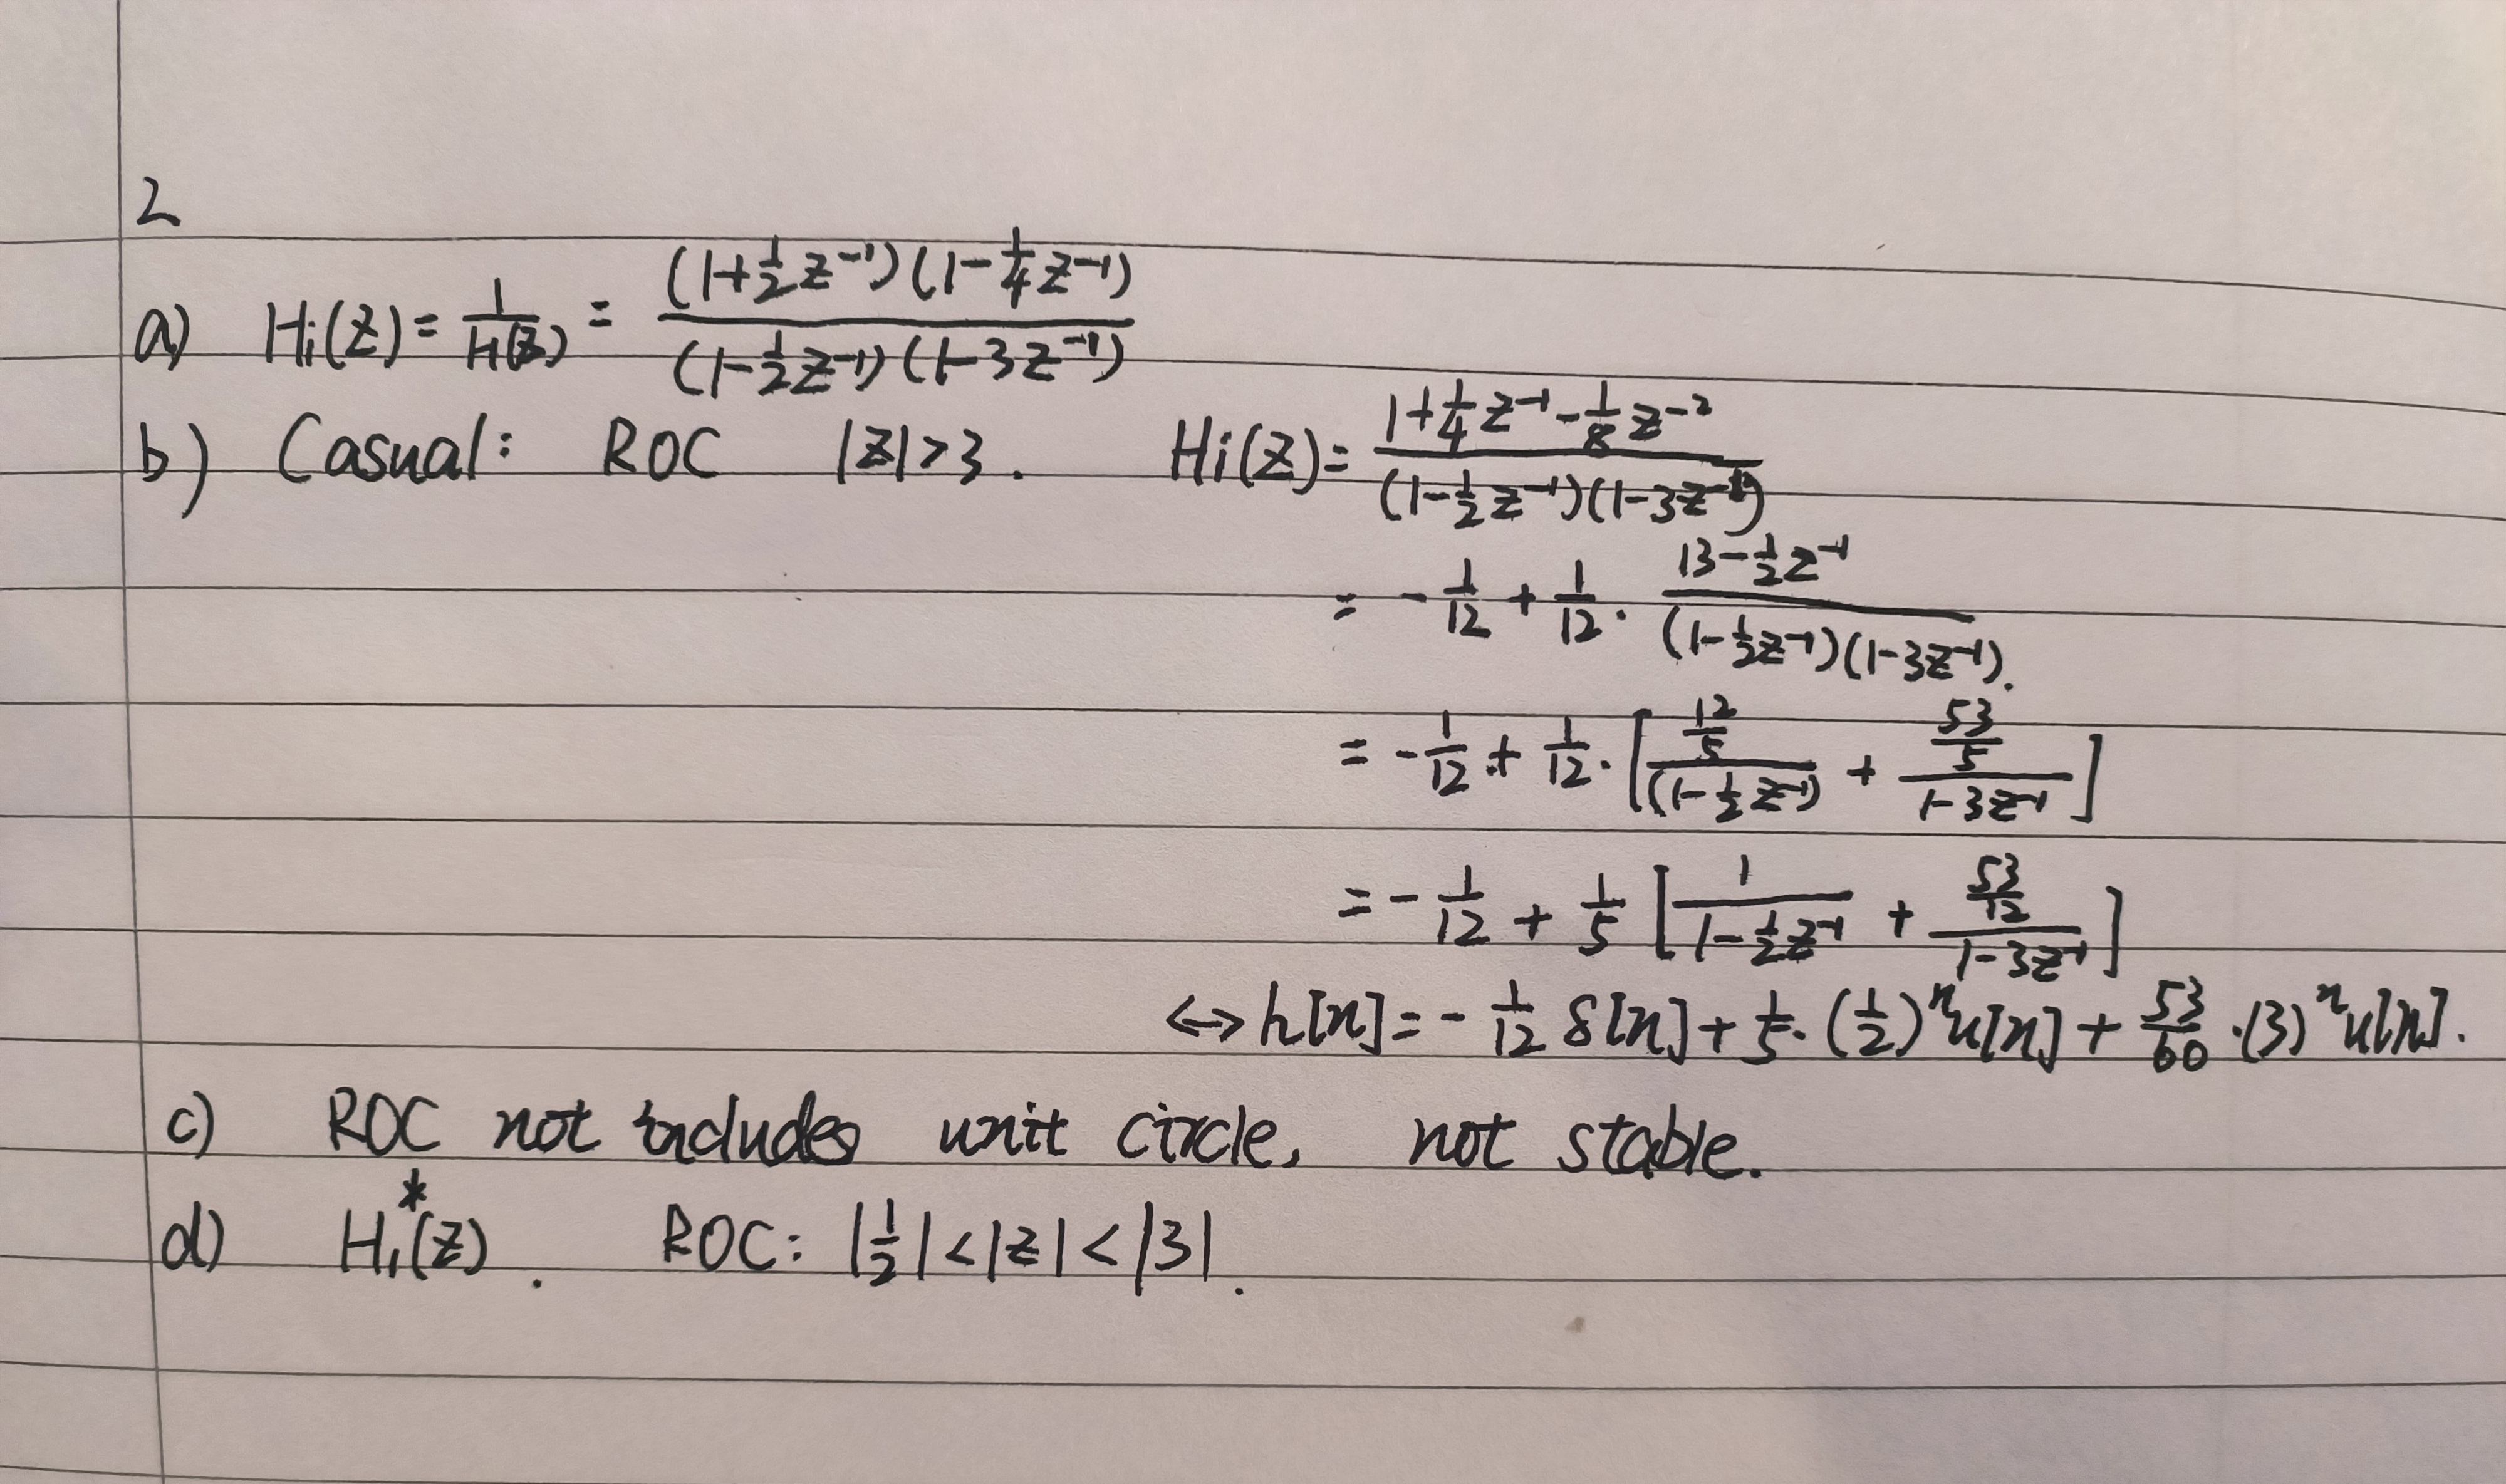 2
a) Hi(z) = 1/H(z) = (1+1/2 z⁻¹)(1-1/4 z⁻¹) / (1-1/2 z⁻¹)(1-3z⁻¹)
b) Casual: ROC |z|>3. Hi(z) = (1+1/4 z⁻¹-1/8 z⁻²) / (1-1/2 z⁻¹)(1-3z⁻¹)
= -1/12 + 1/12 · (13-1/2 z⁻¹) / (1-1/2 z⁻¹)(1-3z⁻¹).
= -1/12 + 1/12 · [ (12/5) / (1-1/2 z⁻¹) + (53/5) / (1-3z⁻¹) ]
= -1/12 + 1/5 [ 1 / (1-1/2 z⁻¹) + (53/12) / (1-3z⁻¹) ]
↔ h[n] = -1/12 δ[n] + 1/5 · (1/2)ⁿu[n] + 53/60 · (3)ⁿu[n].
c) ROC not includes unit circle, not stable.
d) Hi*(z). ROC: |1/2| < |z| < |3|.